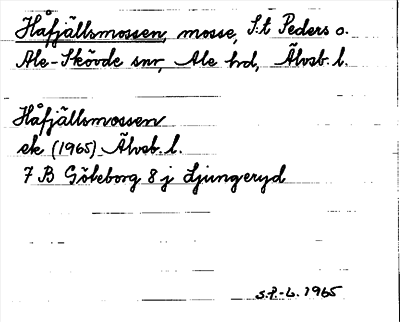 Håfjällsmossen, mosse, S:t Peders o.
Ale-Skövde snr, Ale hd, Älvsb. l.
Håfjällsmossen
ek (1965) Älvsb. l.
7 B Göteborg 8 j Ljungeryd
S.P.-L. 1965